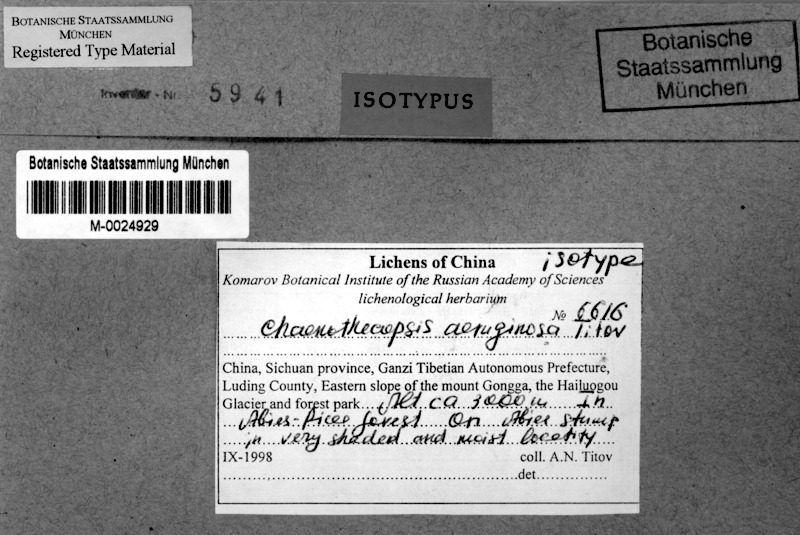 BOTANISCHE STAATSSAMMLUNG
MÜNCHEN
Registered Type Material
Inventar - Nr. 5941
ISOTYPUS
Botanische
Staatssammlung
München
Botanische Staatssammlung München
M-0024929
Lichens of China isotype
Komarov Botanical Institute of the Russian Academy of Sciences
lichenological herbarium
№ 6616
Chaenothecopsis aeruginosa Titov
China, Sichuan province, Ganzi Tibetian Autonomous Prefecture,
Luding County, Eastern slope of the mount Gongga, the Hailuogou
Glacier and forest park Alt ca 3000 m In
Abies-Picea forest On Abies stump
in very shaded and moist locality
IX-1998 coll. A.N. Titov
det